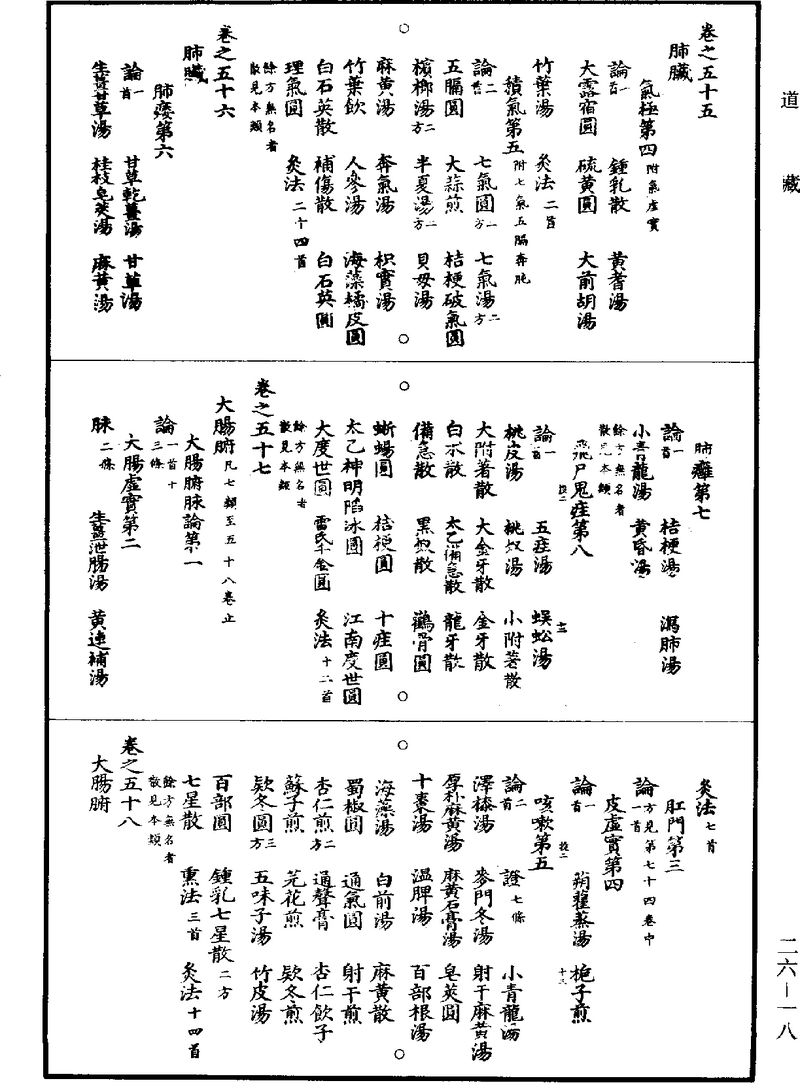 道藏
二六—一八
卷之五十五
肺臟
氣極第四附氣虛實
論一首 鍾乳散 黃耆湯
大露宿圓 硫黃圓 大前胡湯
竹葉湯 灸法二首
積氣第五附七氣五膈奔肫
論二首 七氣圓一方 七氣湯二方
五膈圓 大蒜煎 桔梗破氣圓
檳榔湯二方 半夏湯二方 貝母湯
麻黃湯 奔氣湯 枳實湯
竹葉飲 人參湯 海藻橘皮圓
白石英散 補傷散 白石英圓
理氣圓 灸法二十四首
餘方無名者散見本類
卷之五十六
肺臟
肺痿第六
論一首 甘草乾薑湯 甘草湯
生薑甘草湯 桂枝皂莢湯 麻黃湯
肺癰第七
論一首 桔梗湯 瀉肺湯
小青龍湯 黃昏湯
餘方無名者散見本類
飛尸鬼疰第八
論一首 五疰湯 蜈蚣湯
桃皮湯 桃奴湯 小附著散
大附著散 大金牙散 金牙散
白朮散 太乙備急散 龍牙散
備急散 黑奴散 鸛骨圓
蜥蜴圓 桔梗圓 十疰圓
太乙神明陷冰圓 江南度世圓
大度世圓 雷氏千金圓 灸法十二首
餘方無名者散見本類
卷之五十七
大腸腑凡七類至五十八卷止
大腸腑脉論第一
論一首十三條
大腸虛實第二
脉二條 生薑泄腸湯 黃連補湯
灸法七首
肛門第三
論一首方見第七十四卷中
皮虛實第四
論一首 蒴藋蒸湯 梔子煎
咳嗽第五
論二首 證七條 小青龍湯
澤漆湯 麥門冬湯 射干麻黃湯
厚朴麻黃湯 麻黃石膏湯 皂莢圓
十棗湯 溫脾湯 百部根湯
海藻湯 白前湯 麻黃散
蜀椒圓 通氣圓 射干煎
杏仁煎二方 通聲膏 杏仁飲子
蘇子煎 芫花煎 欵冬煎
欵冬圓三方 五味子湯 竹皮湯
百部圓 鍾乳七星散二方
七星散 熏法三首 灸法十四首
餘方無名者散見本類
卷之五十八
大腸腑